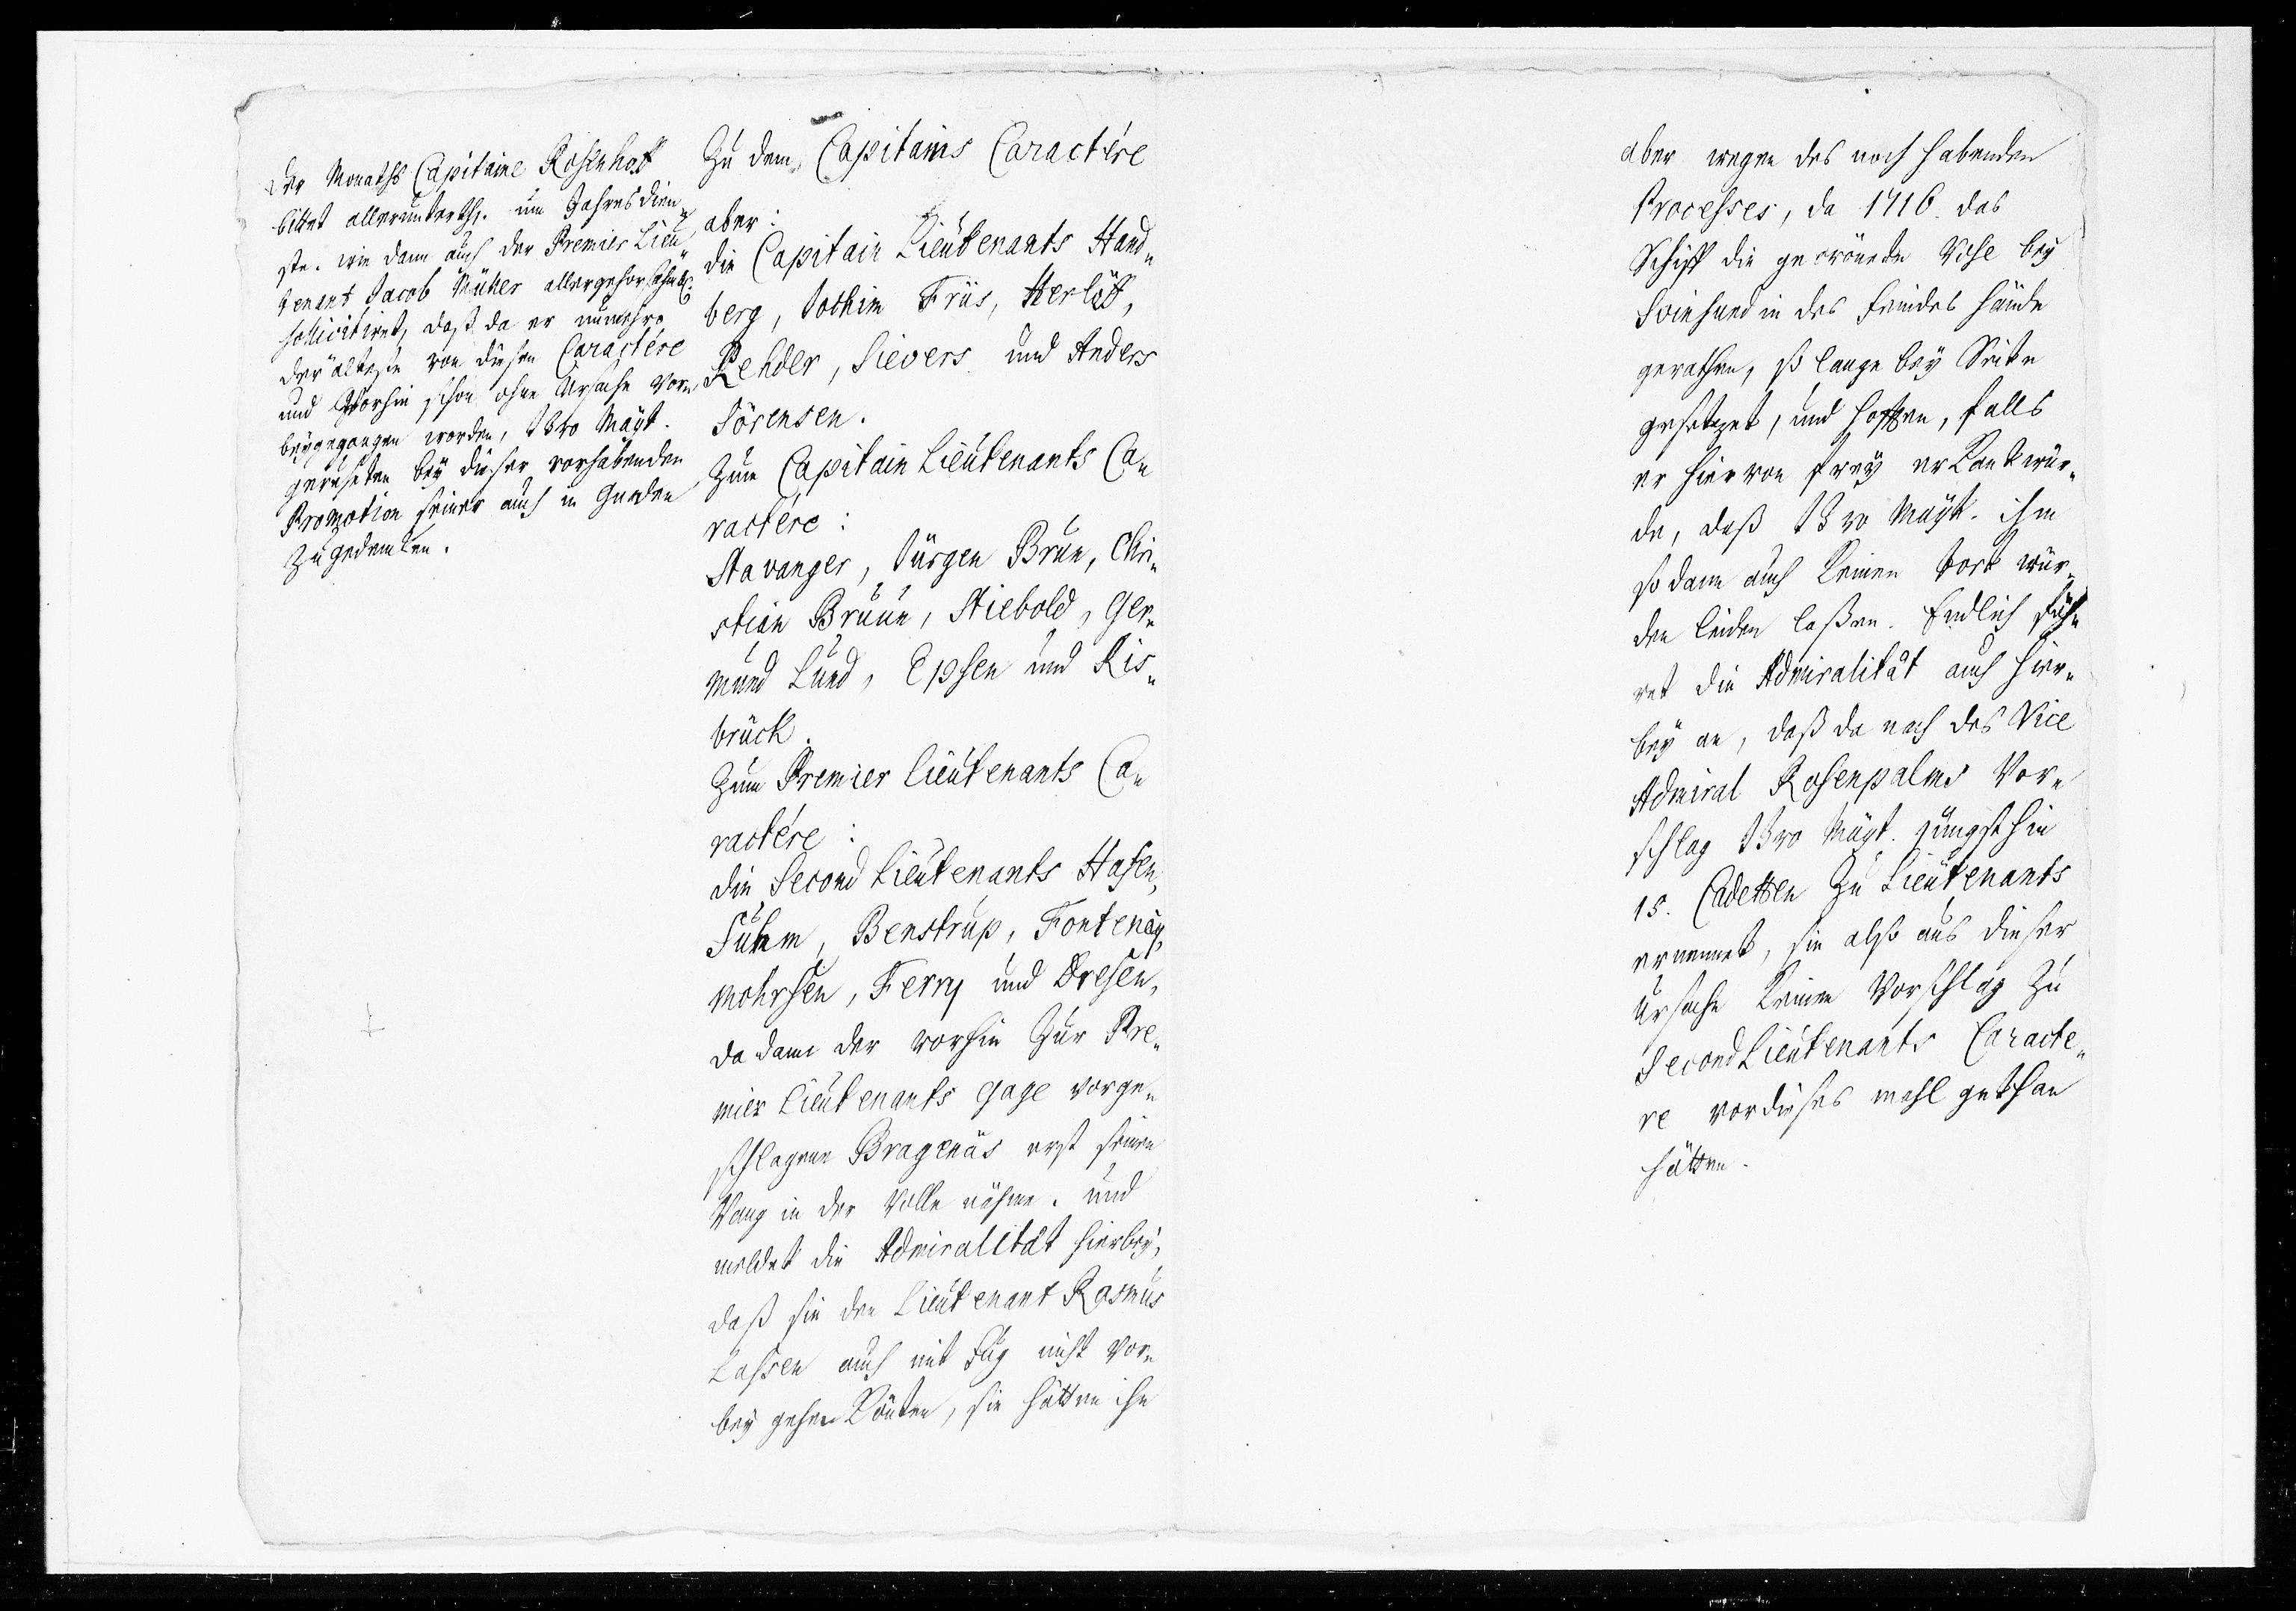 Der Monaths Capitaine Rosenhoff
bittet allerunterth. um Jahres dien-
ste. wie dann auch der Premier Lieu-
tenant Jacob Müller allergehorsahmbst
sollicitiret, daß da er nunmehro
der älteste von diesen Caractére
und Vorhin schon ohne Ursache vor-
beygegangen worden, Ihro Mayt.
geruheten bey dieser vorhabenden
Promotion seiner auch in Gnaden
zu gedencken.
Zu dem Capitains Caractére
aber:
die Capitain Lieutenants Hand-
berg, Jochim Friis, Herloff,
Rehder, Sievers und Anders
Sörensen.
Zum Capitain Lieutenants Ca-
ractére:
Stavanger, Jürgen Brun, Chri-
stian Bruun, Stiebold, Ger-
mund Lund, Epsen und Ris-
brück.
Zum Premier Lieutenants Ca-
ractére:
die Second Lieutenants Hasen,
Suhm, Benstrup, Fontenay,
Mohrsen, Ferry und Dresen,
da dann der vorhin Zur Pre-
mier Lieutenants Gage vorge-
schlagene Bragenäs erst seinen
Rang in der Rolle nähme. und
meldet die Admiralität hierbey,
daß sie den Lieutenant Rasmus
Lassen auch mit Fug nicht vor-
bey gehen Könten, sie hätten ihn
aber wegen des noch habenden
Processes, da 1716. das
Schiff die gecrönede Rose bey
Svinsund in des feindes hände
gerathen, so lange bey Seite
gesetzet, und hoffen, falls
er hiervon frey erkant wür-
de, daß Ihro Mayt. ihm
so dann auch keinen tort wür-
den leiden laßen. Endlich füh-
ret die Admiralität auch hier-
bey an, daß da nach des Vice
Admiral Rosenpalms Vor-
schlag Ihro Mayt. jüngsthin
15. Cadetten Zu Lieutenants
ernennet, sie also aus dieser
Ursache keinen Vorschlag Zu
Second Lieutenants Caracte-
re vor dieses mahl gethan
hätten.